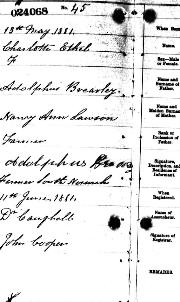 024068
No. 45
13th May, 1881.
Charlotte Ethel
F
Adolphus Brearley
Harry Ann Lawson
Farmer
Adolphus
Farmer South
11th June 1881.
Dr Campbell
John Cooper
When Born
Name.
Sex—Male or Female.
Name and Surname of Father.
Name and Maiden Surname of Mother.
Rank or Profession of Father.
Signature, Description, and Residence of Informant.
When Registered.
Name of
Signature of Registrar.
REMARKS.